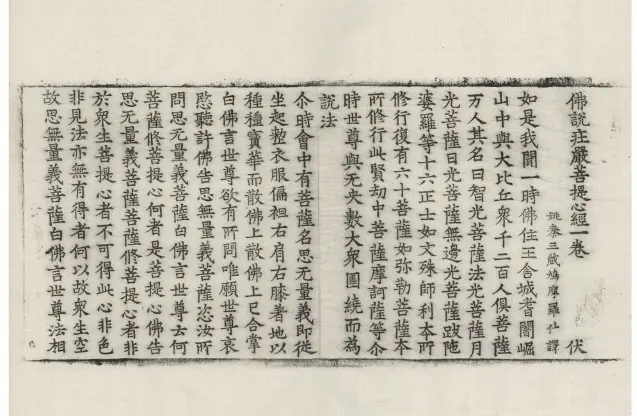 佛說莊嚴菩提心經一卷
姚秦三藏鳩摩羅什譯
伏
如是我聞一時佛住王舍城耆闍崛
山中與大比丘衆千二百人俱菩薩
万人其名曰智光菩薩法光菩薩月
光菩薩日光菩薩無邊光菩薩跋陁
婆羅等十六正士如文殊師利本所
修行復有六十菩薩如弥勒菩薩本
所修行此賢劫中菩薩摩訶薩等尒
時世尊與无央數大衆圍繞而為
說法
尒時會中有菩薩名思无量義即從
坐起整衣服偏袒右肩右膝著地以
種種寶華而散佛上散佛上已合掌
白佛言世尊欲有所問唯願世尊哀
愍聽許佛告思無量義菩薩恣汝所
問思无量義菩薩白佛言世尊云何
菩薩修菩提心何者是菩提心佛告
思无量義菩薩菩薩修菩提心者非
於衆生菩提心者不可得此心非色
非見法亦無有得者何以故衆生空
故思無量義菩薩白佛言世尊法相